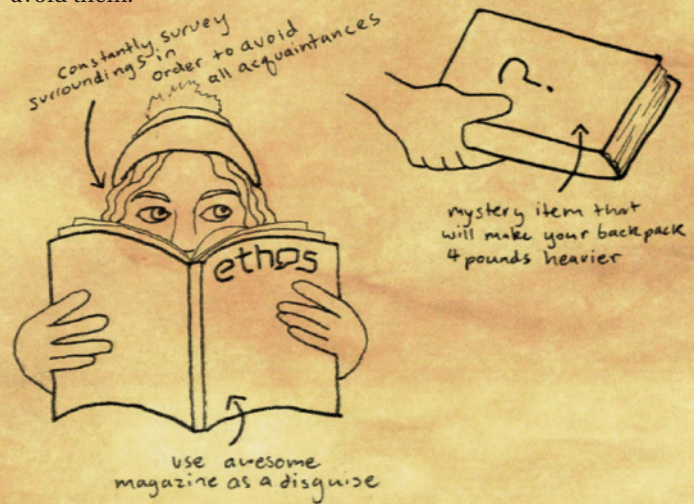 avoid them.
constantly survey
surroundings in
order to avoid
all acquaintances
?
mystery item that
will make your backpack
4 pounds heavier
ethos
use awesome
magazine as a disguise